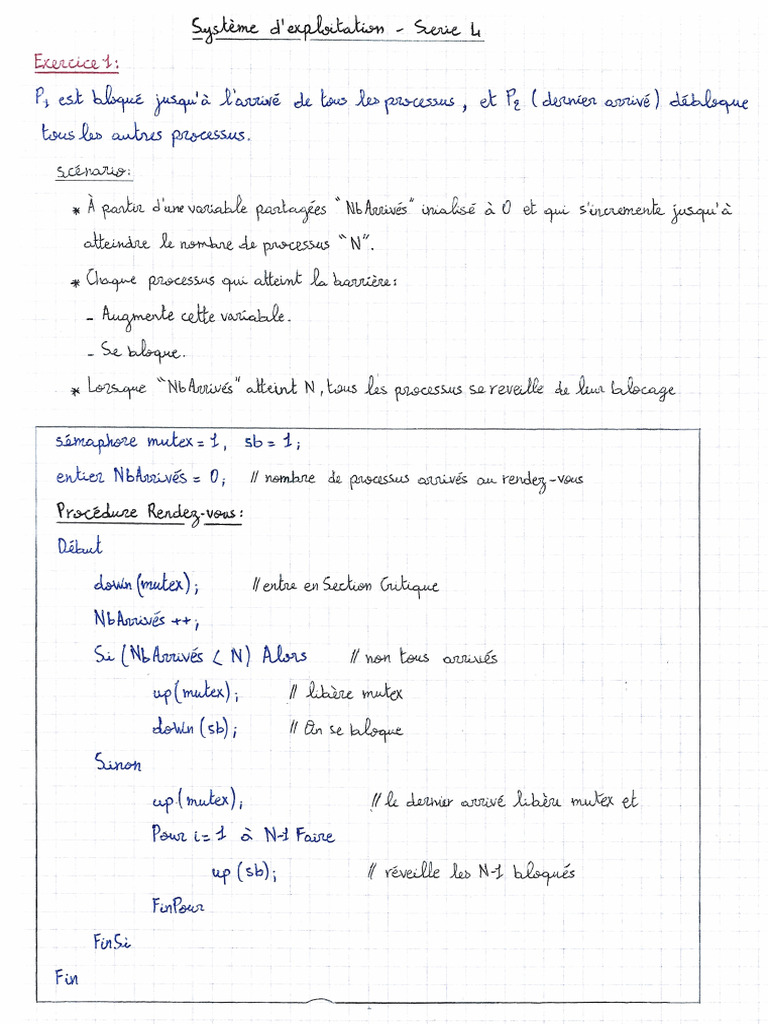 Système d'exploitation - Serie 4
Exercice 1:
P1 est bloqué jusqu'à l'arrivé de tous les processus, et P2 (dernier arrivé) débloque
tous les autres processus.
scénario:
* À partir d'une variable partagées "NbArrivés" inialisé à 0 et qui s'incremente jusqu'à
atteindre le nombre de processus "N".
* Chaque processus qui atteint la barrière:
- Augmente cette variable.
- Se bloque.
* Lorsque "NbArrivés" atteint N, tous les processus se reveille de leur blocage
sémaphore mutex = 1, sb = 1;
entier NbArrivés = 0; // nombre de processus arrivés au rendez-vous
Procédure Rendez-vous:
Début
down(mutex); // entre en Section Critique
NbArrivés ++;
Si (NbArrivés < N) Alors // non tous arrivés
up(mutex); // libère mutex
down(sb); // On se bloque
Sinon
up(mutex); // le dernier arrivé libère mutex et
Pour i = 1 à N-1 Faire
up(sb); // réveille les N-1 bloqués
FinPour
FinSi
Fin